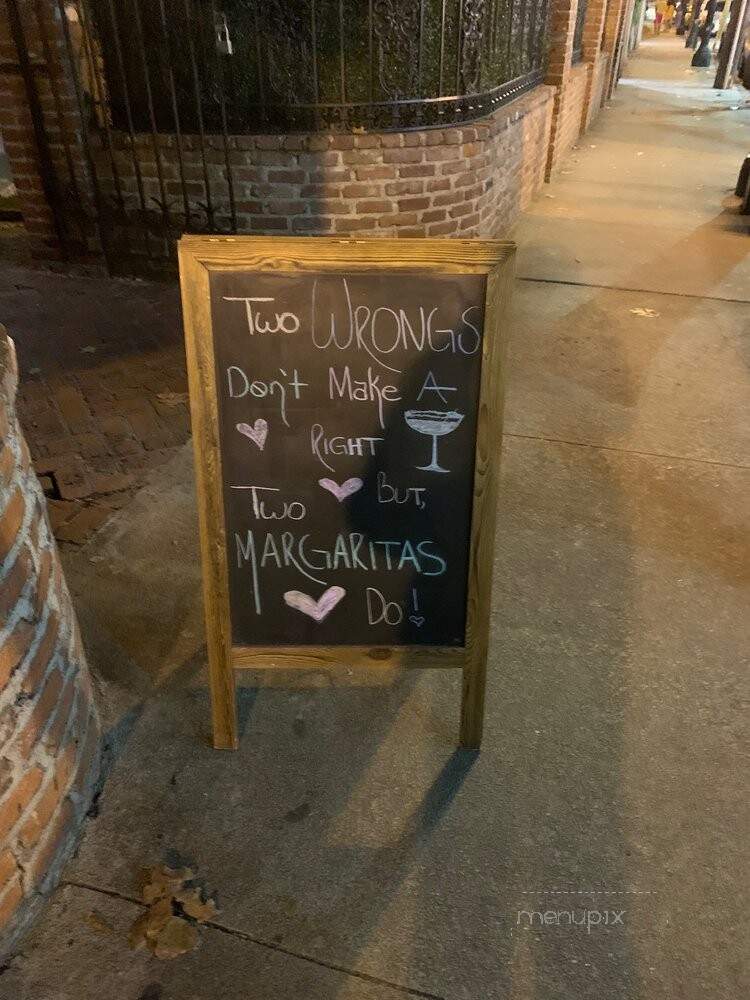 Two WRONGS
Don't Make A
RIGHT
But,
Two
MARGARITAS
Do!
menupix